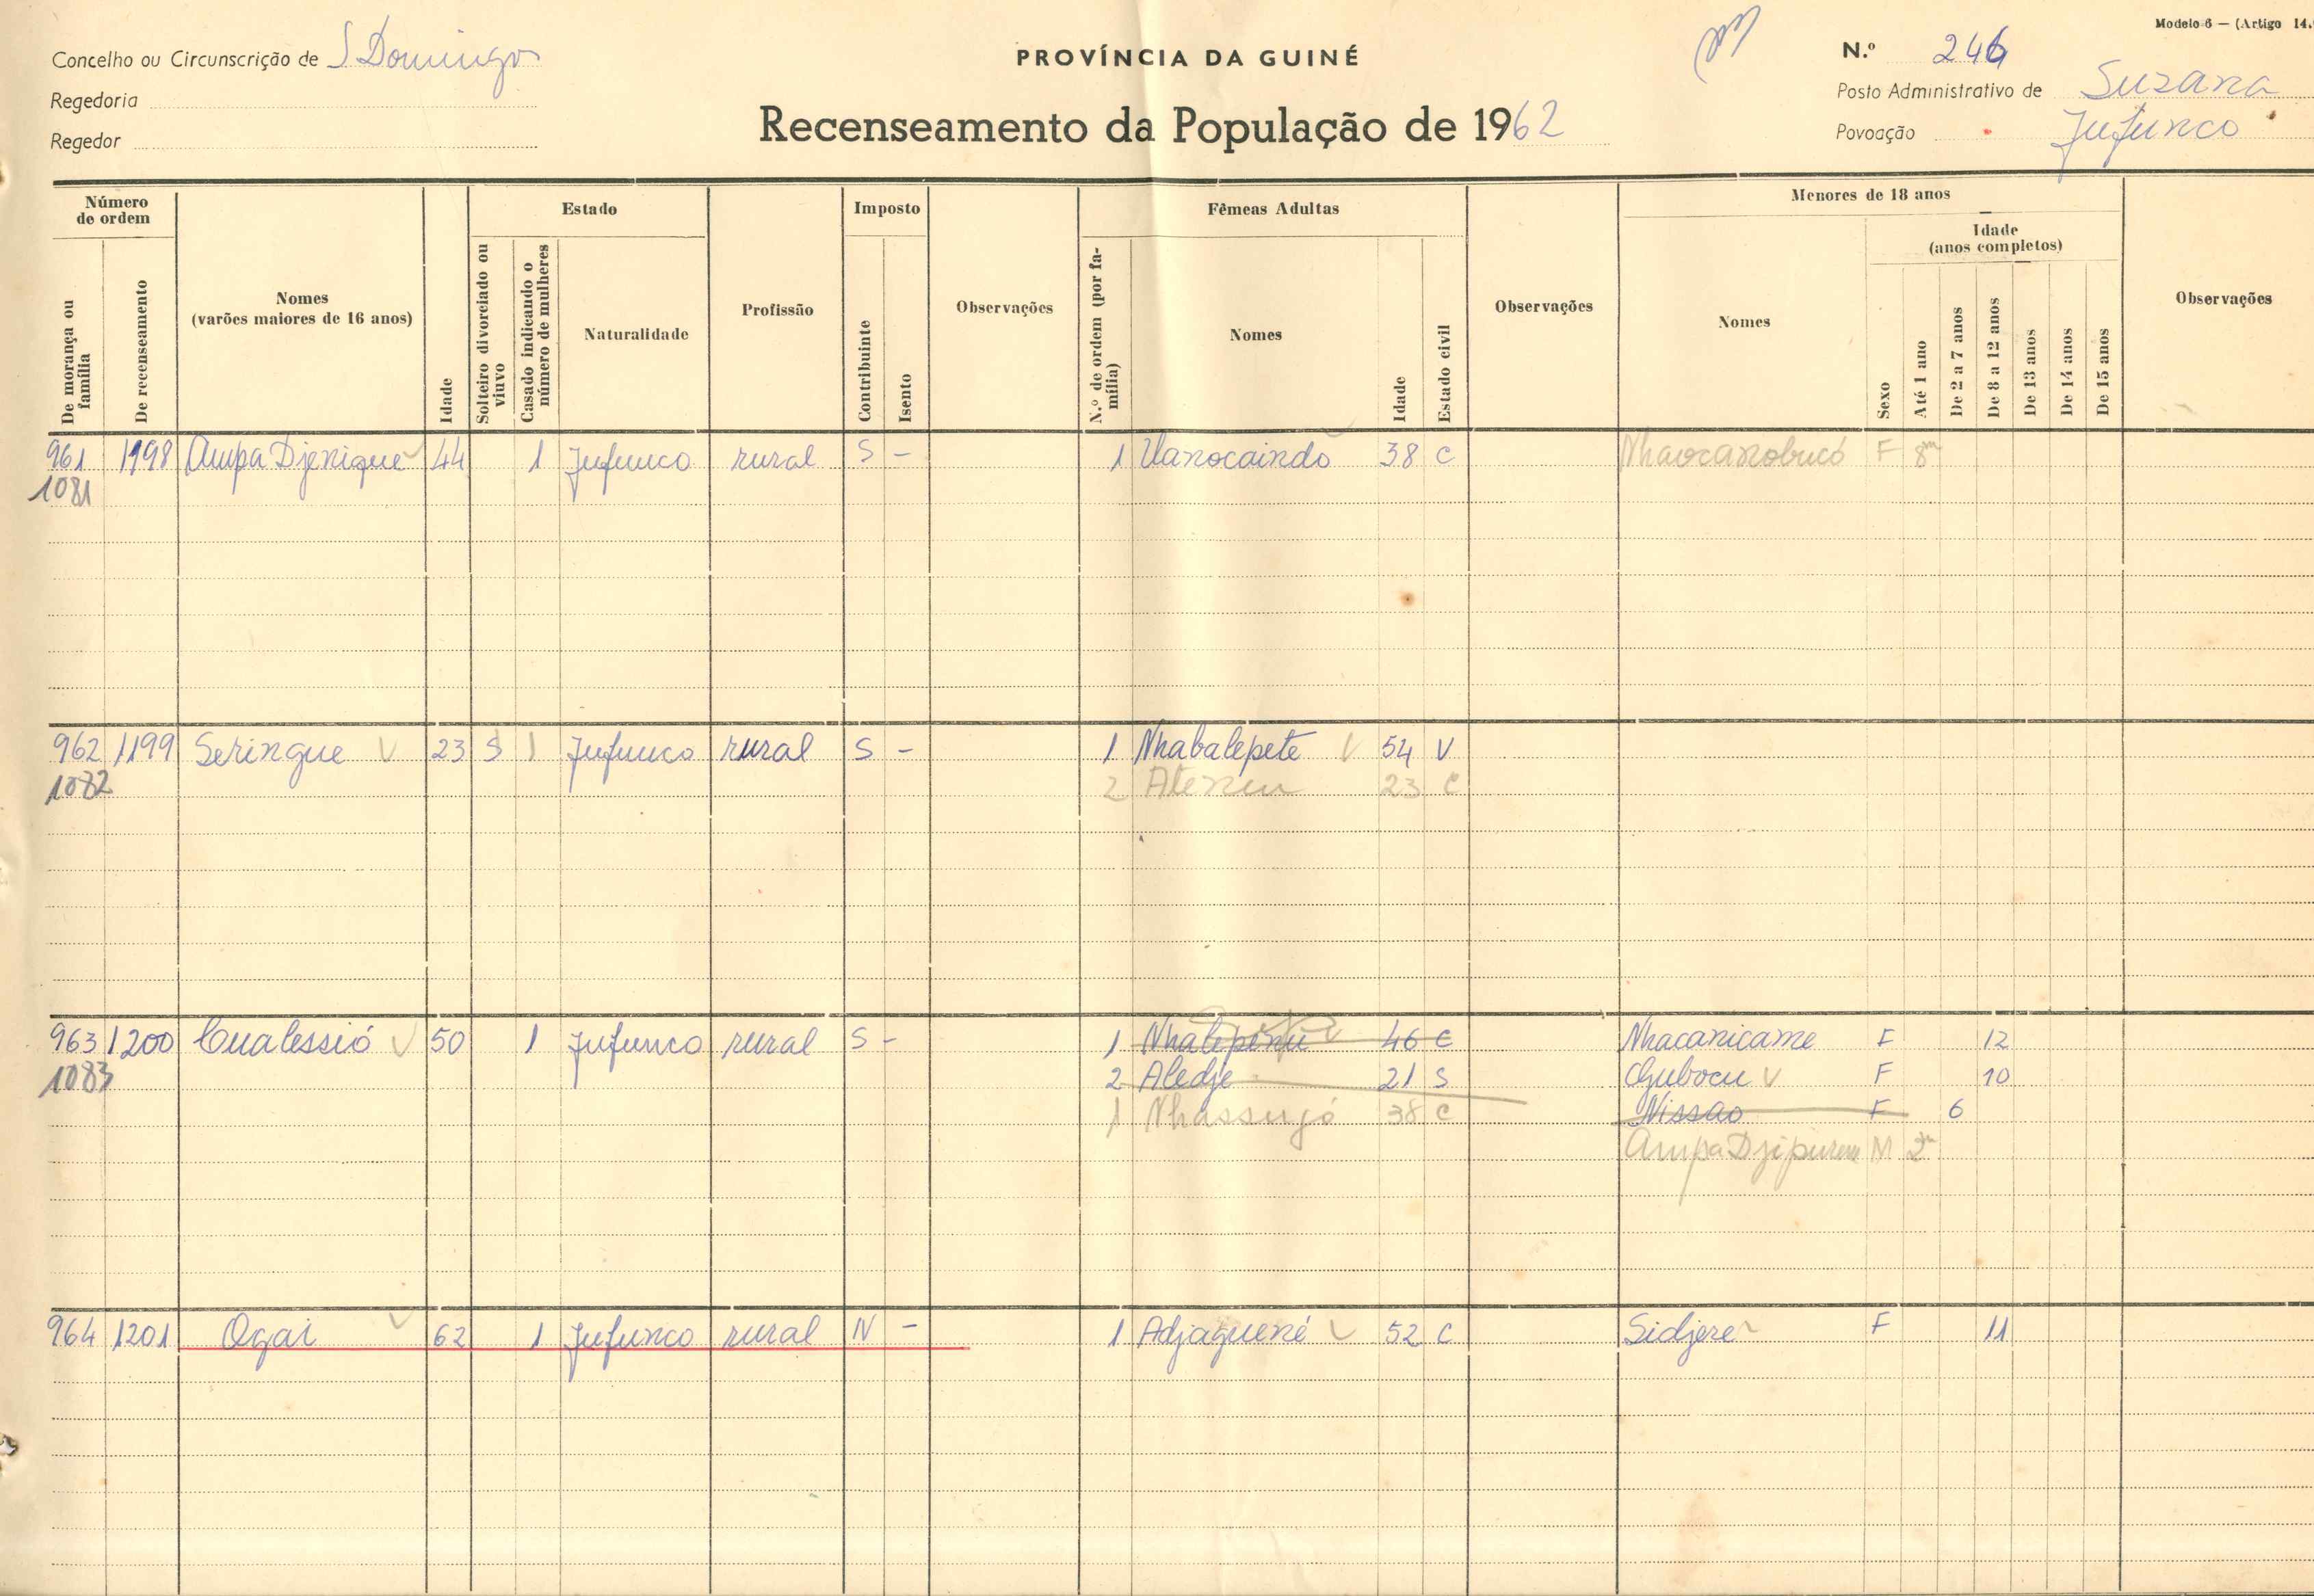 Modelo 6 — (Artigo 14.
Concelho ou Circunscrição de S Domingos
PROVÍNCIA DA GUINÉ
N.º 246
Regedoria
Posto Administrativo de Suzana
Regedor
Recenseamento da População de 1962
Povoação Jufunco
Número de ordem
De morança ou família
De recenseamento
Nomes (varões maiores de 16 anos)
Idade
Estado
Solteiro divorciado ou viuvo
Casado indicando o número de mulheres
Naturalidade
Profissão
Imposto
Contribuinte
Isento
Observações
Fêmeas Adultas
N.º de ordem (por família)
Nomes
Idade
Estado civil
Observações
Menores de 18 anos
Nomes
Sexo
Idade (anos completos)
Até 1 ano
De 2 a 7 anos
De 8 a 12 anos
De 13 anos
De 14 anos
De 15 anos
Observações
961 1198 Ampa Djenique 44 1 Jufunco rural S - 1 Uanocaindo 38 C Nhaocanobucó F 8m
1081
962 1199 Seringue V 23 S 1 Jufunco rural S - 1 Nhabalepete V 54 V
1082 2 Ateneu 23 C
963 1200 Cualessió V 50 1 Jufunco rural S - 1 Nhalipenu 46 C Nhacanicame F 12
1083 2 Aledje 21 S Gubocu V F 10
1 Nhassujó 38 C Nissao F 6
Ampa Djipurem M 2m
964 1201 Ogai V 62 1 Jufunco rural N - 1 Adjaguené V 52 C Sidjere F 11